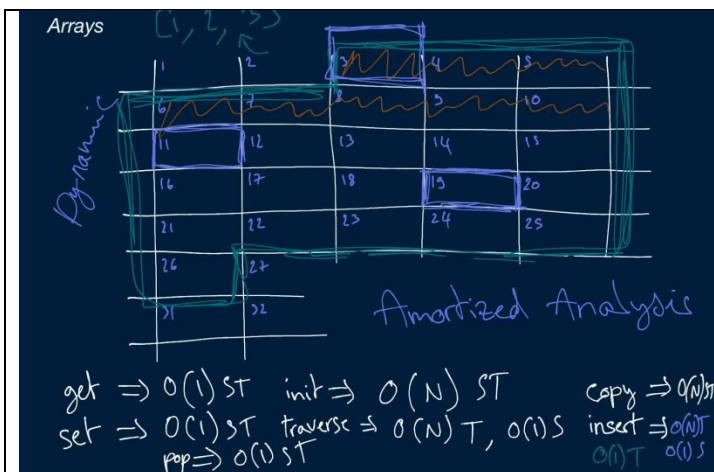 Arrays [1, 2, 3]
1 2 3 4 5
6 7 8 9 10
Dynamic
11 12 13 14 15
16 17 18 19 20
21 22 23 24 25
26 27
31 32
Amortized Analysis
get => O(1) ST init => O(N) ST copy => O(N) ST
set => O(1) ST traverse => O(N) T, O(1) S insert => O(N) T
pop => O(1) ST O(1) T O(1) S